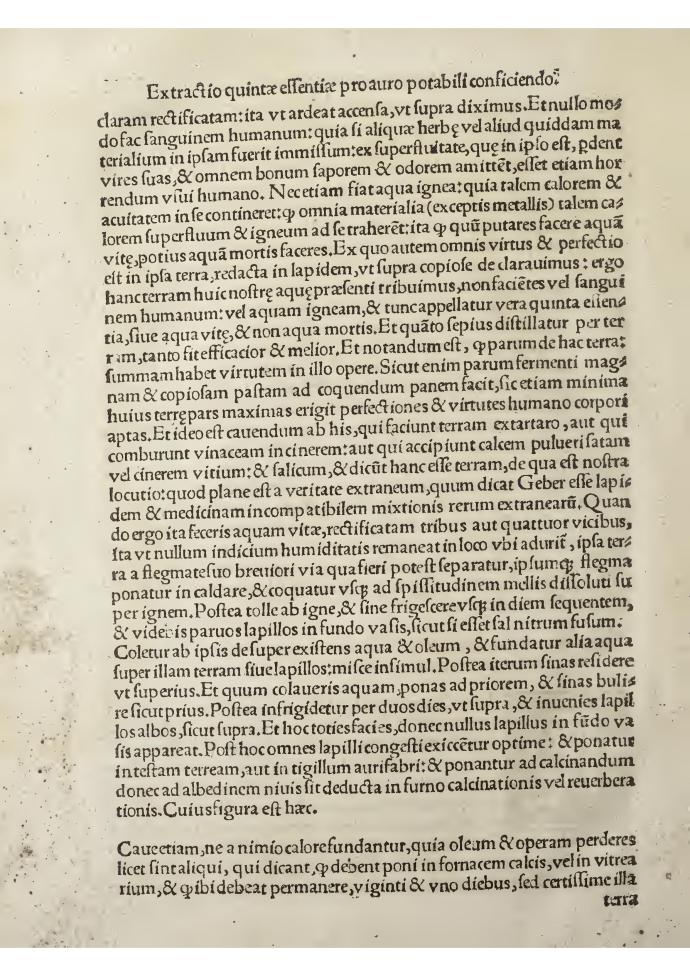 Extractio quintæ essentiæ pro auro potabili conficiendo.
claram rectificatam: ita vt ardeat accensa, vt supra diximus. Et nullo mo⸗
do fac sanguinem humanum: quia si aliquæ herbę vel aliud quiddam ma
terialium in ipsam fuerit immissum: ex superfluitate, quę in ipso est, ꝑdent
vires suas, & omnem bonum saporem & odorem amittēt, esset etiam hor
rendum vsui humano. Nec etiam fiat aqua ignea: quia talem calorem &
acuitatem in se contineret: ꝙ omnia materialia (exceptis metallis) talem ca⸗
lorem superfluum & igneum ad se traherēt: ita ꝙ quū putares facere aquā
vitę, potius aquā mortis faceres. Ex quo autem omnis virtus & perfectio
est in ipsa terra, redacta in lapidem, vt supra copiose declarauimus: ergo
hanc terram huic nostrę aquę præsenti tribuimus, non faciētes vel sangui
nem humanum: vel aquam igneam, & tunc appellatur vera quinta essen⸗
tia, siue aqua vitę, & non aqua mortis. Et quāto sepius distillatur per ter
ram, tanto fit efficacior & melior. Et notandum est, ꝙ parum de hac terra:
summam habet virtutem in illo opere. Sicut enim parum fermenti mag⸗
nam & copiosam pastam ad coquendum panem facit, sic etiam minima
huius terrę pars maximas erigit perfectiones & virtutes humano corpori
aptas. Et ideo est cauendum ab his, qui faciunt terram ex tartaro, aut qui
comburunt vinaceam in cinerem: aut qui accipiunt calcem puluerisatam
vel cinerem vitium: & salicum, & dicūt hanc esse terram, de qua est nostra
locutio: quod plane est a veritate extraneum, quum dicat Geber esse lapi⸗
dem & medicinam incompatibilem mixtionis rerum extranearū. Quan
do ergo ita feceris aquam vitæ, rectificatam tribus aut quattuor vicibus,
ita vt nullum indicium humiditatis remaneat in loco vbi adurit̄, ipsa ter⸗
ra a flegmate suo breuiori via qua fieri potest separatur, ipsumq̧ flegma
ponatur in caldare, & coquatur vsq̧ ad spissitudinem mellis dissoluti su
per ignem. Postea tolle ab igne, & sine frigescere vsq̧ in diem sequentem,
& videbis paruos lapillos in fundo vasis, sicut si esset sal nitrum fusum.
Coletur ab ipsis desuper existens aqua & oleum, & fundatur alia aqua
super illam terram siue lapillos: misce insimul. Postea iterum sinas residere
vt superius. Et quum colaueris aquam, ponas ad priorem, & sinas buli⸗
re sicut prius. Postea infrigidetur per duos dies, vt supra, & inuenies lapil
los albos, sicut supra. Et hoc toties facies, donec nullus lapillus in fūdo va
sis appareat. Post hoc omnes lapilli congesti exiccētur optime: & ponatur
in testam terream, aut in tigillum aurifabri: & ponantur ad calcinandum
donec ad albedinem niuis sit deducta in furno calcinationis vel reuerbera
tionis. Cuius figura est hæc.
Caue etiam, ne a nimio calore fundantur, quia oleum & operam perderes
licet sint aliqui, qui dicant, ꝙ debent poni in fornacem calcis, vel in vitrea
rium, & ꝙ ibi debeat permanere, viginti & vno diebus, sed certissime illā
terra